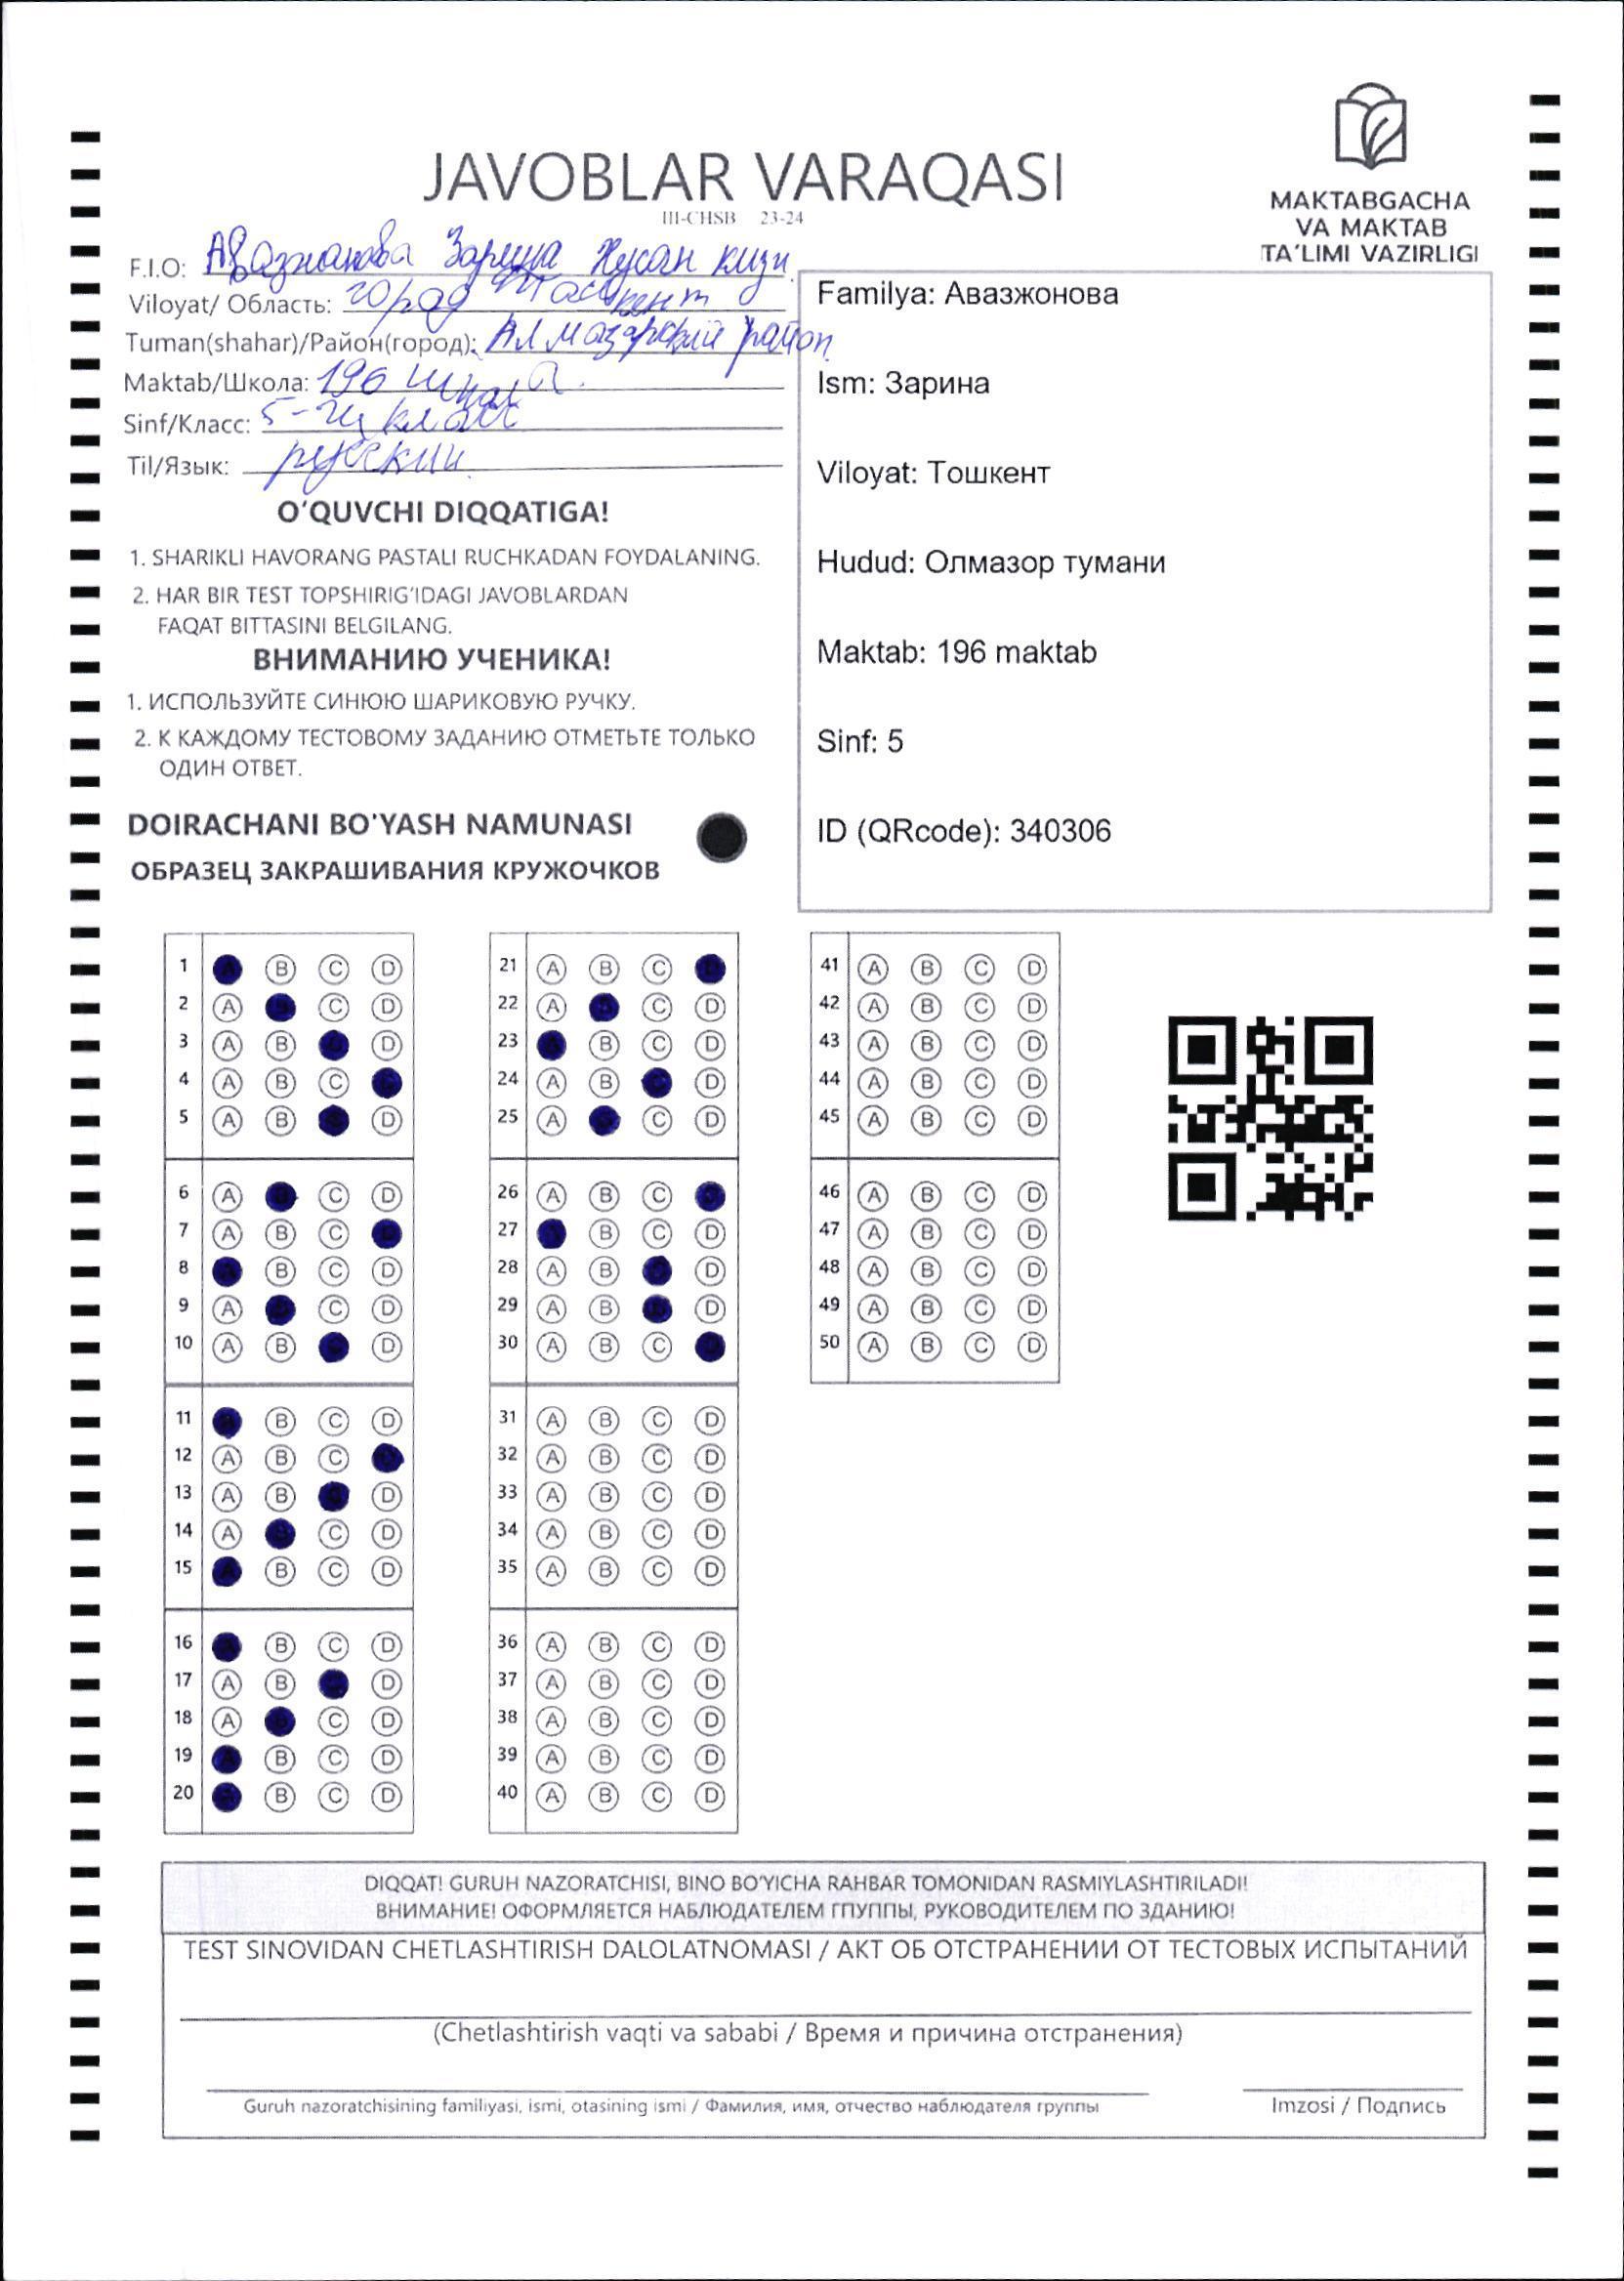 JAVOBLAR VARAQASI
III-CHSB 23-24
MAKTABGACHA
VA MAKTAB
TA'LIMI VAZIRLIGI
F.I.O: Авазжанова Зарина Хусан кизи
Viloyat/ Область: город Ташкент
Tuman(shahar)/Район(город): Алмазарский район.
Maktab/Школа: 196 школа.
Sinf/Класс: 5-ги класс
Til/Язык: русский.
O'QUVCHI DIQQATIGA!
1. SHARIKLI HAVORANG PASTALI RUCHKADAN FOYDALANING.
2. HAR BIR TEST TOPSHIRIG'IDAGI JAVOBLARDAN
FAQAT BITTASINI BELGILANG.
ВНИМАНИЮ УЧЕНИКА!
1. ИСПОЛЬЗУЙТЕ СИНЮЮ ШАРИКОВУЮ РУЧКУ.
2. К КАЖДОМУ ТЕСТОВОМУ ЗАДАНИЮ ОТМЕТЬТЕ ТОЛЬКО
ОДИН ОТВЕТ.
DOIRACHANI BO'YASH NAMUNASI
ОБРАЗЕЦ ЗАКРАШИВАНИЯ КРУЖОЧКОВ
Familya: Авазжонова
Ism: Зарина
Viloyat: Тошкент
Hudud: Олмазор тумани
Maktab: 196 maktab
Sinf: 5
ID (QRcode): 340306
1 A B C D
2 A C D
3 A B D
4 A B C
5 A B D
6 A C D
7 A B C
8 A B C D
9 A C D
10 A B D
11 B C D
12 A B C
13 A B D
14 A C D
15 A B C D
16 B C D
17 A B D
18 A C D
19 A B C D
20 B C D
21 A B C
22 A C D
23 B C D
24 A B D
25 A C D
26 A B C
27 B C D
28 A B D
29 A B D
30 A B C
31 A B C D
32 A B C D
33 A B C D
34 A B C D
35 A B C D
36 A B C D
37 A B C D
38 A B C D
39 A B C D
40 A B C D
41 A B C D
42 A B C D
43 A B C D
44 A B C D
45 A B C D
46 A B C D
47 A B C D
48 A B C D
49 A B C D
50 A B C D
DIQQAT! GURUH NAZORATCHISI, BINO BO'YICHA RAHBAR TOMONIDAN RASMIYLASHTIRILADI!
ВНИМАНИЕ! ОФОРМЛЯЕТСЯ НАБЛЮДАТЕЛЕМ ГПУППЫ, РУКОВОДИТЕЛЕМ ПО ЗДАНИЮ!
TEST SINOVIDAN CHETLASHTIRISH DALOLATNOMASI / АКТ ОБ ОТСТРАНЕНИИ ОТ ТЕСТОВЫХ ИСПЫТАНИЙ
(Chetlashtirish vaqti va sababi / Время и причина отстранения)
Guruh nazoratchisining familiyasi, ismi, otasining ismi / Фамилия, имя, отчество наблюдателя группы
Imzosi / Подпись